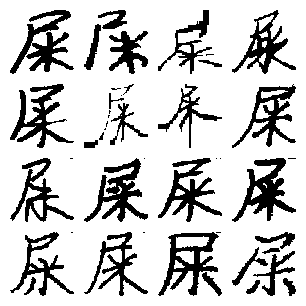 屎屎屎屎
屎屎屎屎
屎屎屎屎
屎屎屎屎